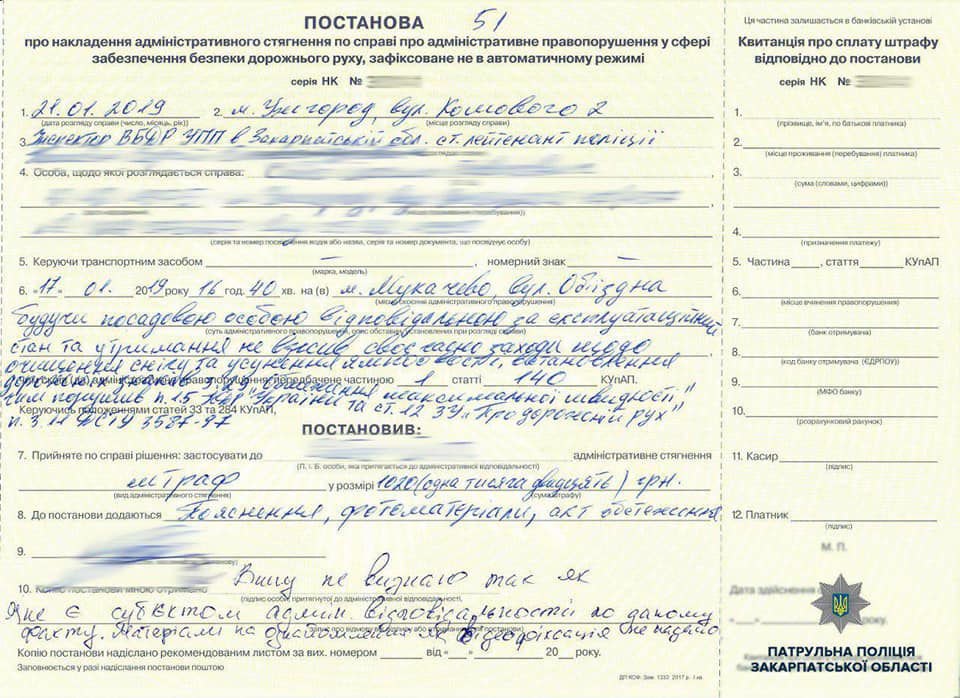 ПОСТАНОВА 51
про накладення адміністративного стягнення по справі про адміністративне правопорушення у сфері
забезпечення безпеки дорожнього руху, зафіксоване не в автоматичному режимі
серія НК №
1. 21.01.2019 2. м. Ужгород, вул. Комового 2
(дата розгляду справи (число, місяць, рік)) (місце розгляду справи)
3. Інспектор ВБДР УПП в Закарпатській обл. ст. лейтенант поліції
4. Особа, щодо якої розглядається справа:
(серія та номер посвідчення водія або назва, серія та номер документа, що посвідчує особу)
5. Керуючи транспортним засобом — , номерний знак —
(марка, модель)
6. «17» 01. 2019 року 16 год. 40 хв. на (в) м. Мукачево, вул. Об'їздна
(місце скоєння адміністративного правопорушення)
будучи посадовою особою відповідальною за експлуатаційний
(суть адміністративного правопорушення, опис обставин, установлених при розгляді справи)
стан та утримання не вжив своєчасно заходи щодо
очищення снігу та усунення ямковості, встановлення
дорожніх знаків
адміністративне правопорушення, передбачене частиною 1 статті 140 КУпАП.
"обмеження максимальної швидкості"
чим порушив п. 1.5 ПДР України та ст. 12 ЗУ "Про дорожній рух"
Керуючись положеннями статей 33 та 284 КУпАП,
п. 3.1.1 ДСТУ 3587-97
ПОСТАНОВИВ:
7. Прийняте по справі рішення: застосувати до адміністративне стягнення
(П. І. Б. особи, яка притягається до адміністративної відповідальності)
штраф у розмірі 1020 (одна тисяча двадцять) грн.
(вид адміністративного стягнення) (сума штрафу)
8. До постанови додаються Пояснення, фотоматеріали, акт обстеження
9.
10. Копію постанови мною отримано Вину не визнаю так як
(підпис особи, притягнутої до адміністративної відповідальності,
Я не є субєктом адмін відповідальності по даному
факту. Матеріали на ознайомлення як відеофіксація не надано
Копію постанови надіслано рекомендованим листом за вих. номером від «__» 20__ року.
Заповнюється у разі надіслання постанови поштою
ДП КОФ. Зам. 1333 2017 р. I кв.
Ця частина залишається в банківській установі
Квитанція про сплату штрафу
відповідно до постанови
серія НК №
1.
(прізвище, ім'я, по батькові платника)
2.
(місце проживання (перебування) платника)
3.
(сума (словами, цифрами))
4.
(призначення платежу)
5. Частина , стаття КУпАП
6.
(місце вчинення правопорушення)
7.
(банк отримувача)
8.
(код банку отримувача (ЄДРПОУ))
9.
(МФО банку)
10.
(розрахунковий рахунок)
11. Касир
(підпис)
12. Платник
(підпис)
М. П.
Дата здійснення
року.
ПАТРУЛЬНА ПОЛІЦІЯ
ЗАКАРПАТСЬКОЇ ОБЛАСТІ